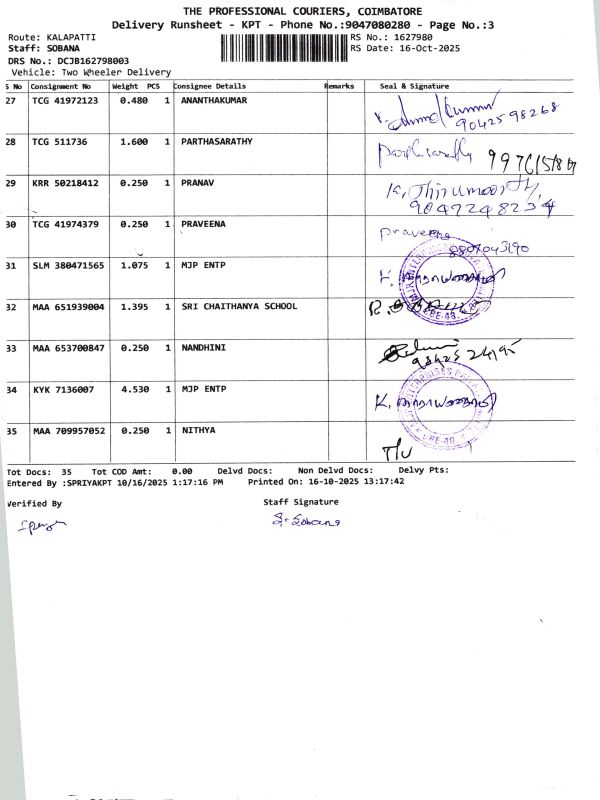 THE PROFESSIONAL COURIERS, COIMBATORE
Delivery Runsheet - KPT - Phone No.:9047080280 - Page No.:3
Route: KALAPATTI RS No.: 1627980
Staff: SOBANA RS Date: 16-Oct-2025
DRS No.: DCJB162798003
Vehicle: Two Wheeler Delivery
S No Consignment No Weight PCS Consignee Details Remarks Seal & Signature
27 TCG 41972123 0.480 1 ANANTHAKUMAR
9042598268
28 TCG 511736 1.600 1 PARTHASARATHY Parthsarathy
29 KRR 50218412 0.250 1 PRANAV K. Thirumoorthy
9047248254
30 TCG 41974379 0.250 1 PRAVEENA praveena
8807043190
31 SLM 380471565 1.075 1 MJP ENTP
32 MAA 651939004 1.395 1 SRI CHAITHANYA SCHOOL
33 MAA 653700847 0.250 1 NANDHINI
34 KYK 7136007 4.530 1 MJP ENTP
35 MAA 709957052 0.250 1 NITHYA
Tot Docs: 35 Tot COD Amt: 0.00 Delvd Docs: Non Delvd Docs: Delvy Pts:
Entered By :SPRIYAKPT 10/16/2025 1:17:16 PM Printed On: 16-10-2025 13:17:42
Verified By Staff Signature
S. Sobana